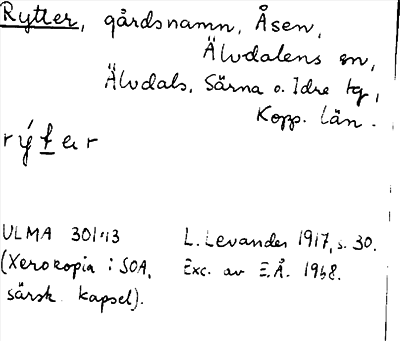 Rytter, gårdsnamn, Åsen,
Älvdalens sn,
Älvdals, Särna o. Idre tg,
Kopp. län.
rýtar
ULMA 301:13 L. Levander 1917, s. 30.
(Xerokopia i SOA, Exc. av E.Å. 1968.
särsk. kapsel).